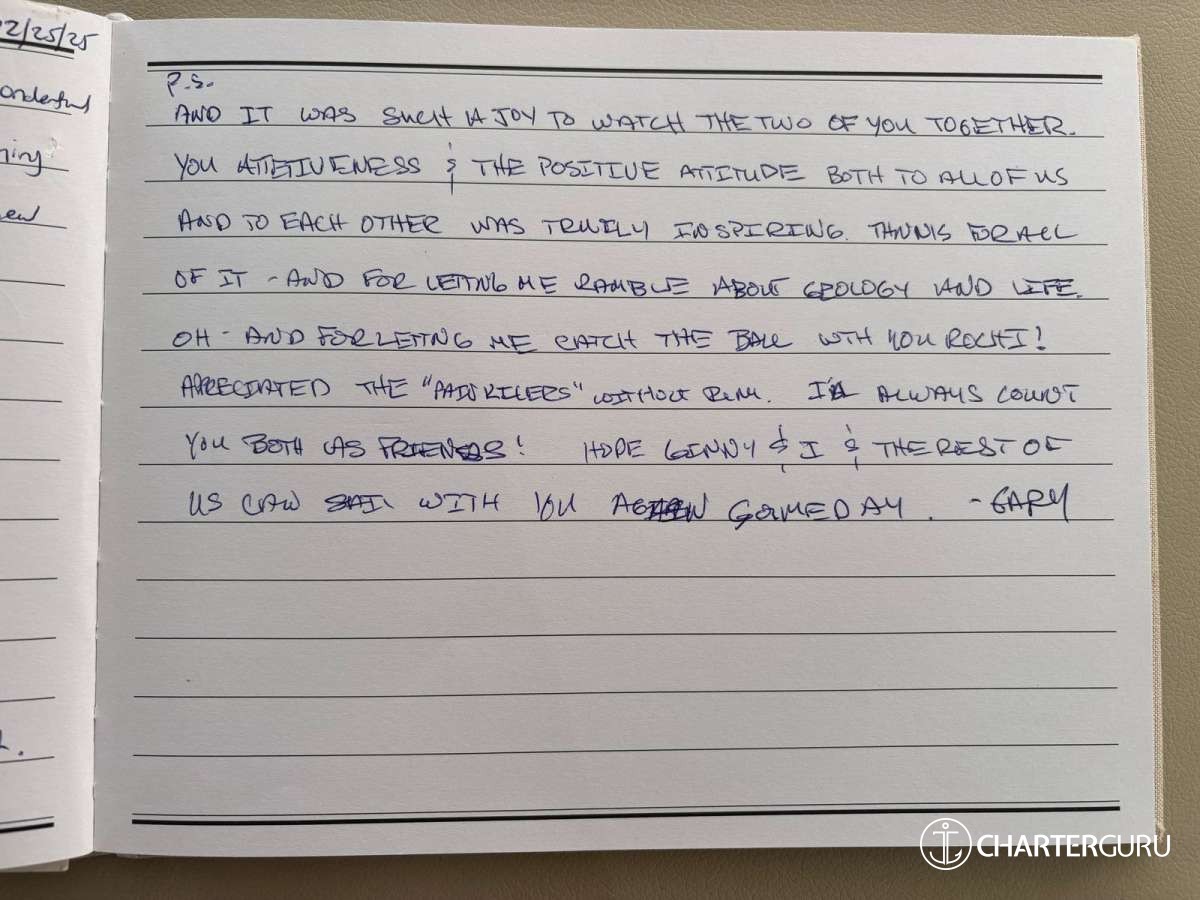 2/25/25
onderful
ew
P.S.
AND IT WAS SUCH A JOY TO WATCH THE TWO OF YOU TOGETHER.
YOU ATTETIVENESS & THE POSITIVE ATTITUDE BOTH TO ALL OF US
AND TO EACH OTHER WAS TRUILY INSPIRING. THANKS FOR ALL
OF IT - AND FOR LETTING ME RAMBLE ABOUT GEOLOGY AND LIFE.
OH - AND FOR LETTING ME CATCH THE BALL WITH YOU ROCHI!
APPRECIATED THE "PAINKILLERS" WITHOUT RUM. I'LL ALWAYS COUNT
YOU BOTH AS FRIENDS! HOPE GINNY & I & THE REST OF
US CAN SAIL WITH YOU AGAIN SOMEDAY. - GARY
CHARTERGURU